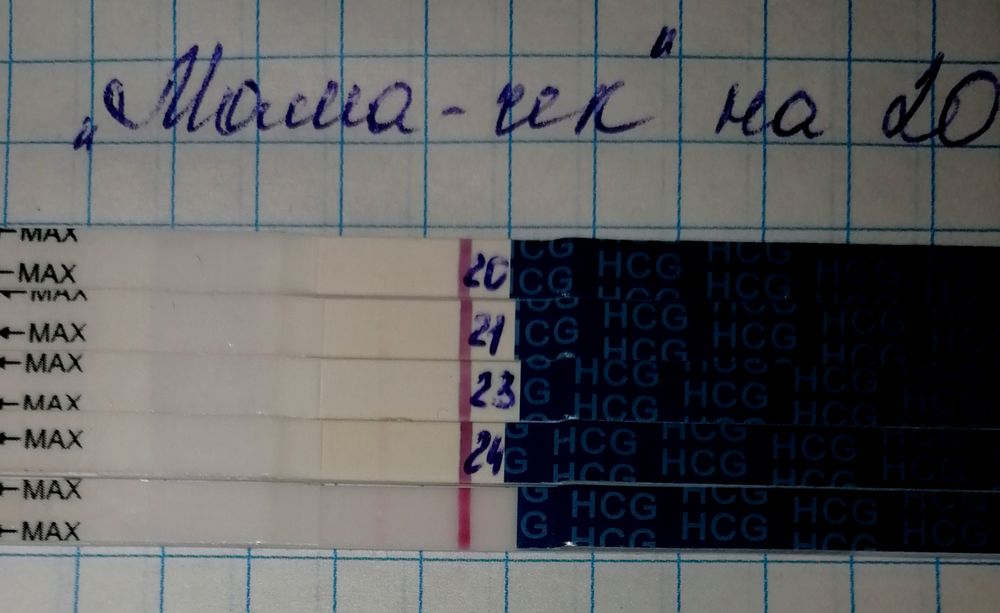 „Мама-чек" на 20
←MAX
←MAX 20 HCG HCG HCG HCG
←MAX HCG HCG HCG HCG
←MAX 21 HCG HCG HCG HCG
←MAX HCG HCG HCG HCG
←MAX 23 HCG HCG HCG
←MAX 24 HCG HCG HCG HCG
←MAX HCG HCG HCG
←MAX HCG HCG HCG HCG